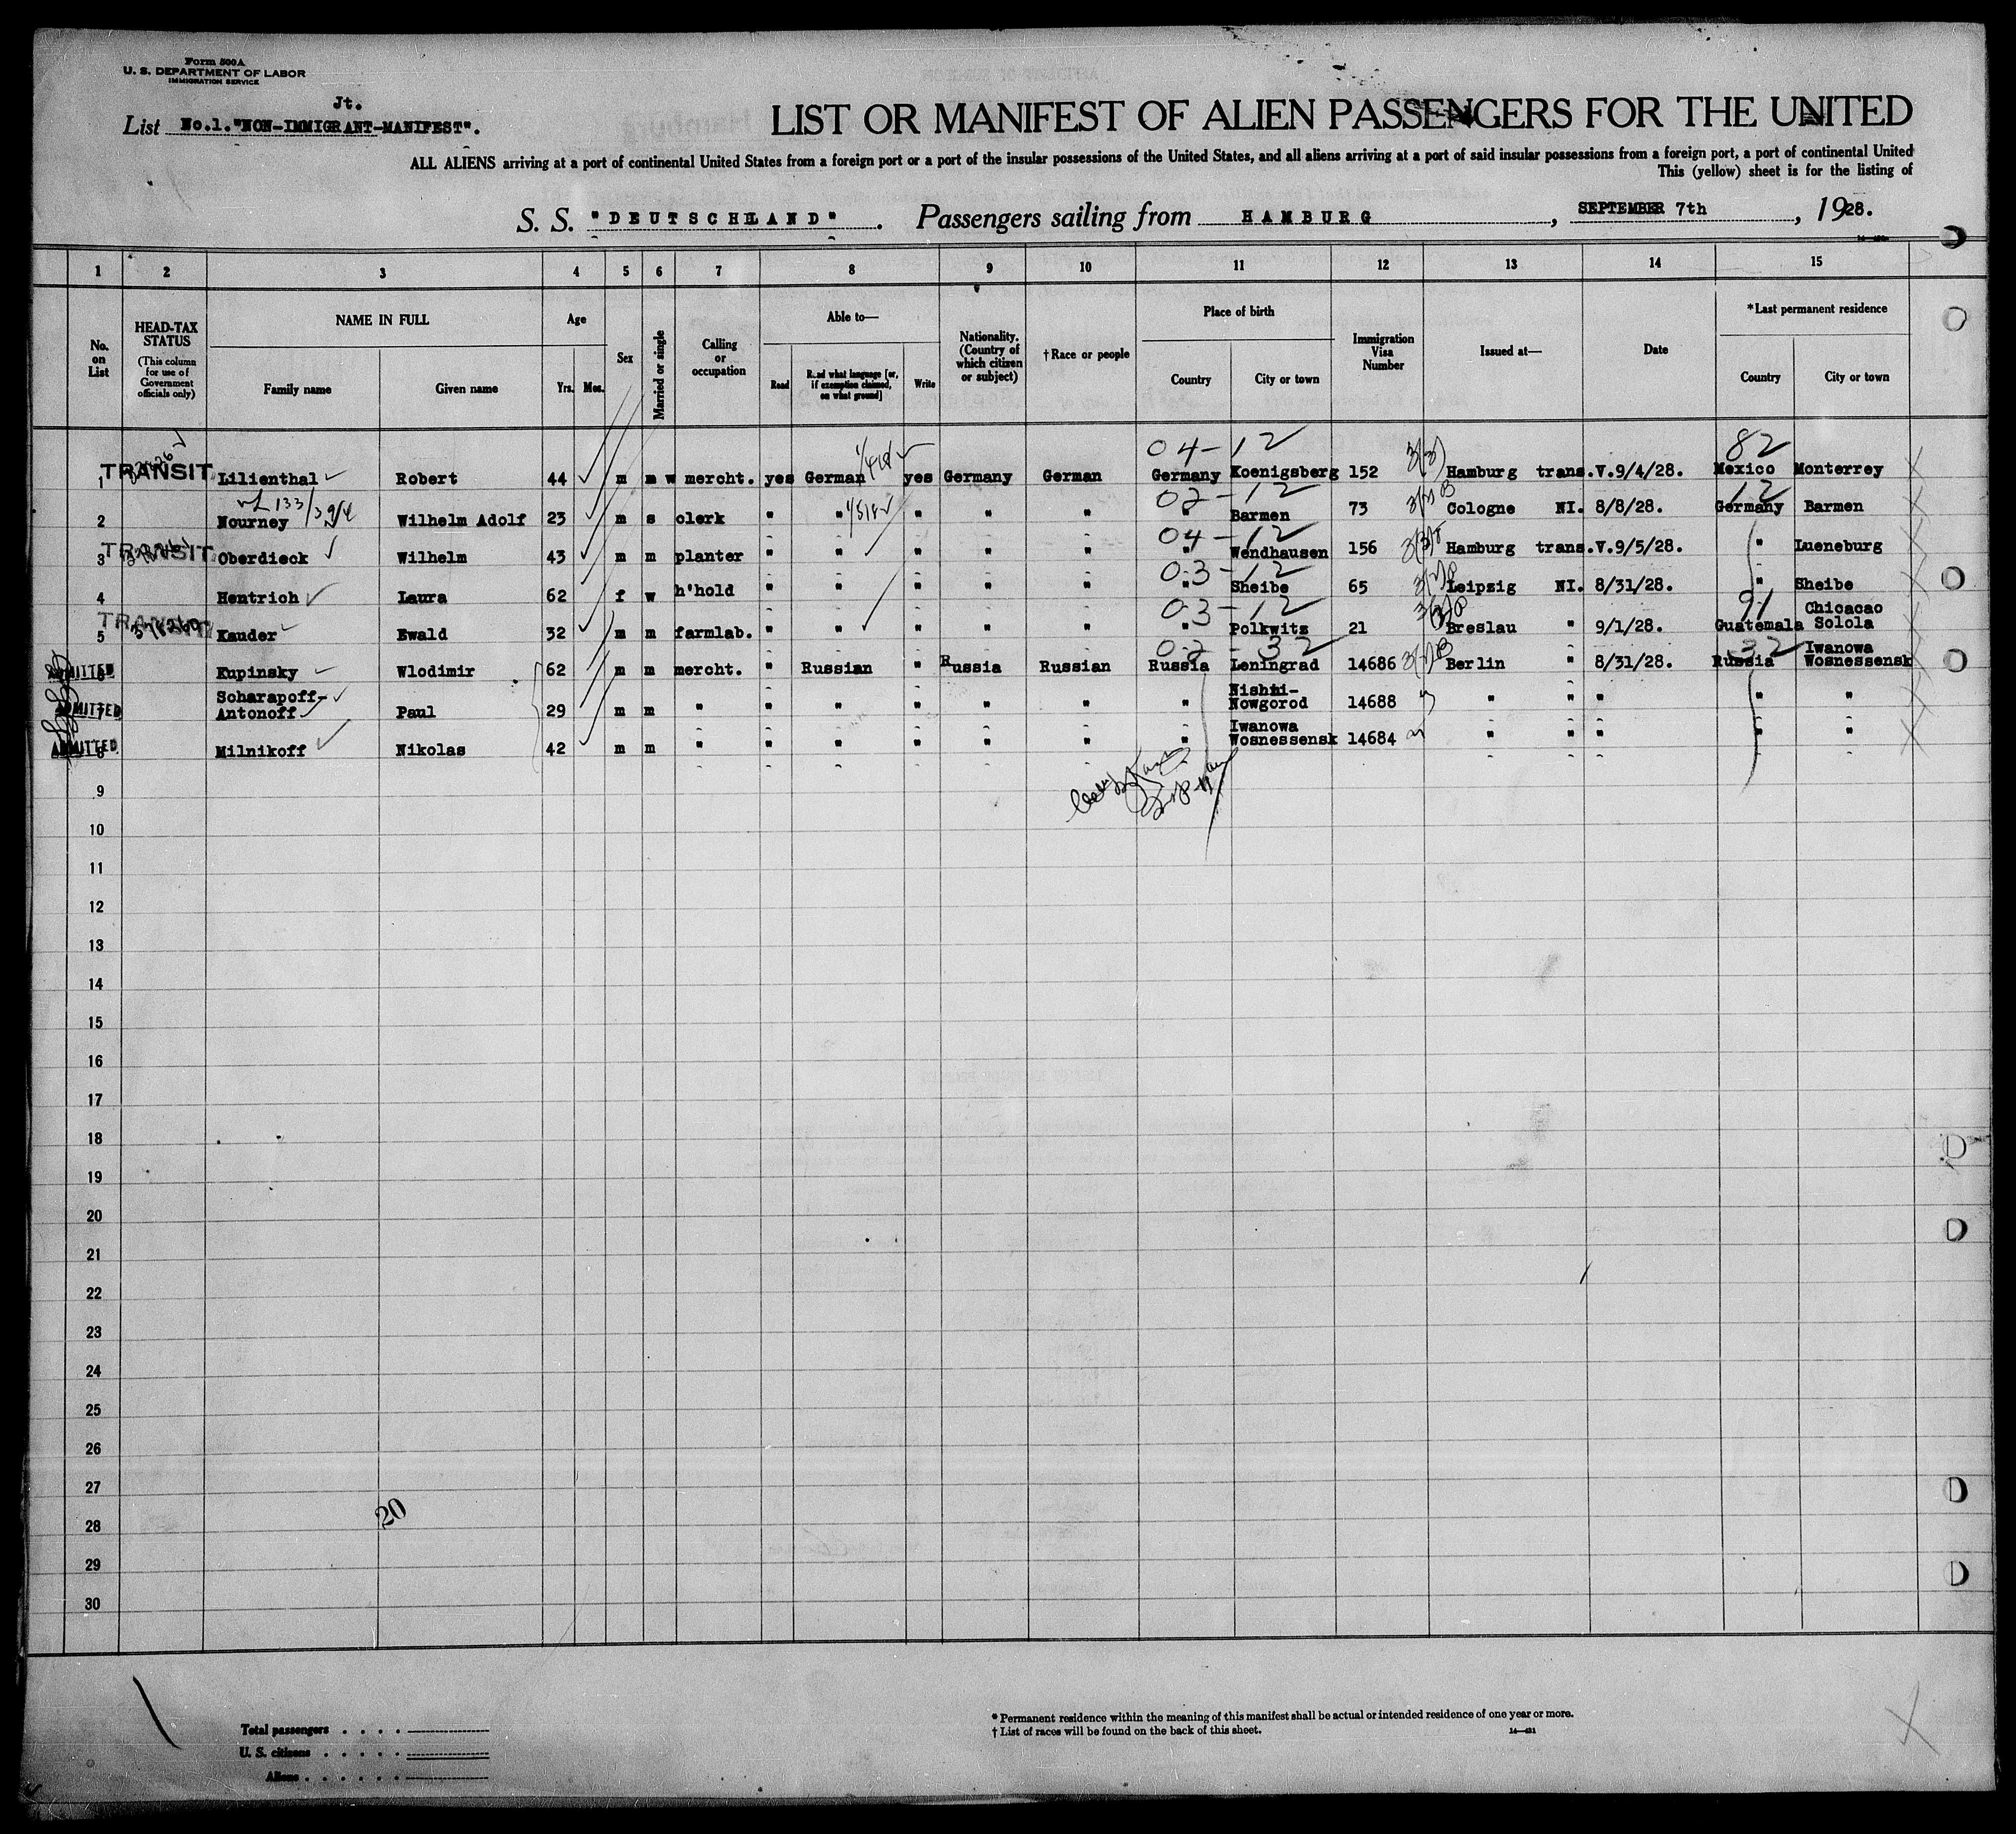 Form 500A
U. S. DEPARTMENT OF LABOR
IMMIGRATION SERVICE
Jt.
List No.1."NON-IMMIGRANT-MANIFEST".
LIST OR MANIFEST OF ALIEN PASSENGERS FOR THE UNITED
ALL ALIENS arriving at a port of continental United States from a foreign port or a port of the insular possessions of the United States, and all aliens arriving at a port of said insular possessions from a foreign port, a port of continental United
This (yellow) sheet is for the listing of
S. S. "DEUTSCHLAND". Passengers sailing from HAMBURG, SEPTEMBER 7th, 1928.
1 2 3 4 5 6 7 8 9 10 11 12 13 14 15
No. on List
HEAD-TAX STATUS (This column for use of Government officials only)
NAME IN FULL Family name Given name
Age Yrs. Mos.
Sex
Married or single
Calling or occupation
Able to— Read Read what language [or, if exemption claimed, on what ground] Write
Nationality. (Country of which citizen or subject)
† Race or people
Place of birth Country City or town
Immigration Visa Number
Issued at—
Date
*Last permanent residence Country City or town
04-12 82
1 TRANSIT Lilienthal Robert 44 m m w mercht. yes German yes Germany German Germany Koenigsberg 152 Hamburg trans.V. 9/4/28. Mexico Monterrey
02-12 12
2 Nourney Wilhelm Adolf 23 m s clerk " " " " " " Barmen 73 Cologne NI. 8/8/28. Germany Barmen
04-12
3 TRANSIT Oberdieck Wilhelm 43 m m planter " " " " " " Wendhausen 156 Hamburg trans.V. 9/5/28. " Lueneburg
03-12
4 Hentrich Laura 62 f w h'hold " " " " " " Sheibe 65 Leipzig NI. 8/31/28. " Sheibe
03-12 91
5 TRANSIT 378260 Kauder Ewald 32 m m farmlab. " " " " " " Polkwitz 21 Breslau " 9/1/28. Guatemala Chicacao Solola
02-32 32
6 ADMITTED Kupinsky Wlodimir 62 m m mercht. " Russian " Russia Russian Russia Leningrad 14686 Berlin " 8/31/28. Russia Iwanowa Wosnessensk
7 ADMITTED Scharapoff-Antonoff Paul 29 m m " " " " " " " Nishni-Nowgorod 14688 " " " " "
8 ADMITTED Milnikoff Nikolas 42 m m " " " " " " " Iwanowa Wosnessensk 14684 " " " " "
9
10
11
12
13
14
15
16
17
18
19
20
21
22
23
24
25
26
27
28
29
30
20
Total passengers . . . .
U. S. citizens . . . . .
Aliens . . . . . .
* Permanent residence within the meaning of this manifest shall be actual or intended residence of one year or more.
† List of races will be found on the back of this sheet.
14—421